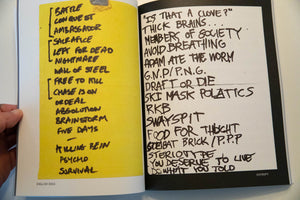 BATTLE
CONQUEST
AMBASSADOR
SACRAFICE
LEFT FOR DEAD
NIGHTMARE
WALL OF STEEL
FREE TO KILL
CHASE IS ON
ORDEAL
ABSOLUTION
BRAINSTORM
FIVE DAYS
KILLING
PSYCHO
SURVIVAL
"IS THAT A CLOVE?"
THICK BRAINS...
MEMBERS OF SOCIETY
AVOID BREATHING
ADAM ATE THE WORM
G.N.D/P.N.G.
DRAFT OR DIE
SKI MASK POLATICS
RKB
FOOD FOR THOUGHT
BRICK/P.P.P
STERIOTYPE
YOU DESERVE TO LIVE
DO WHAT YOU TOLD